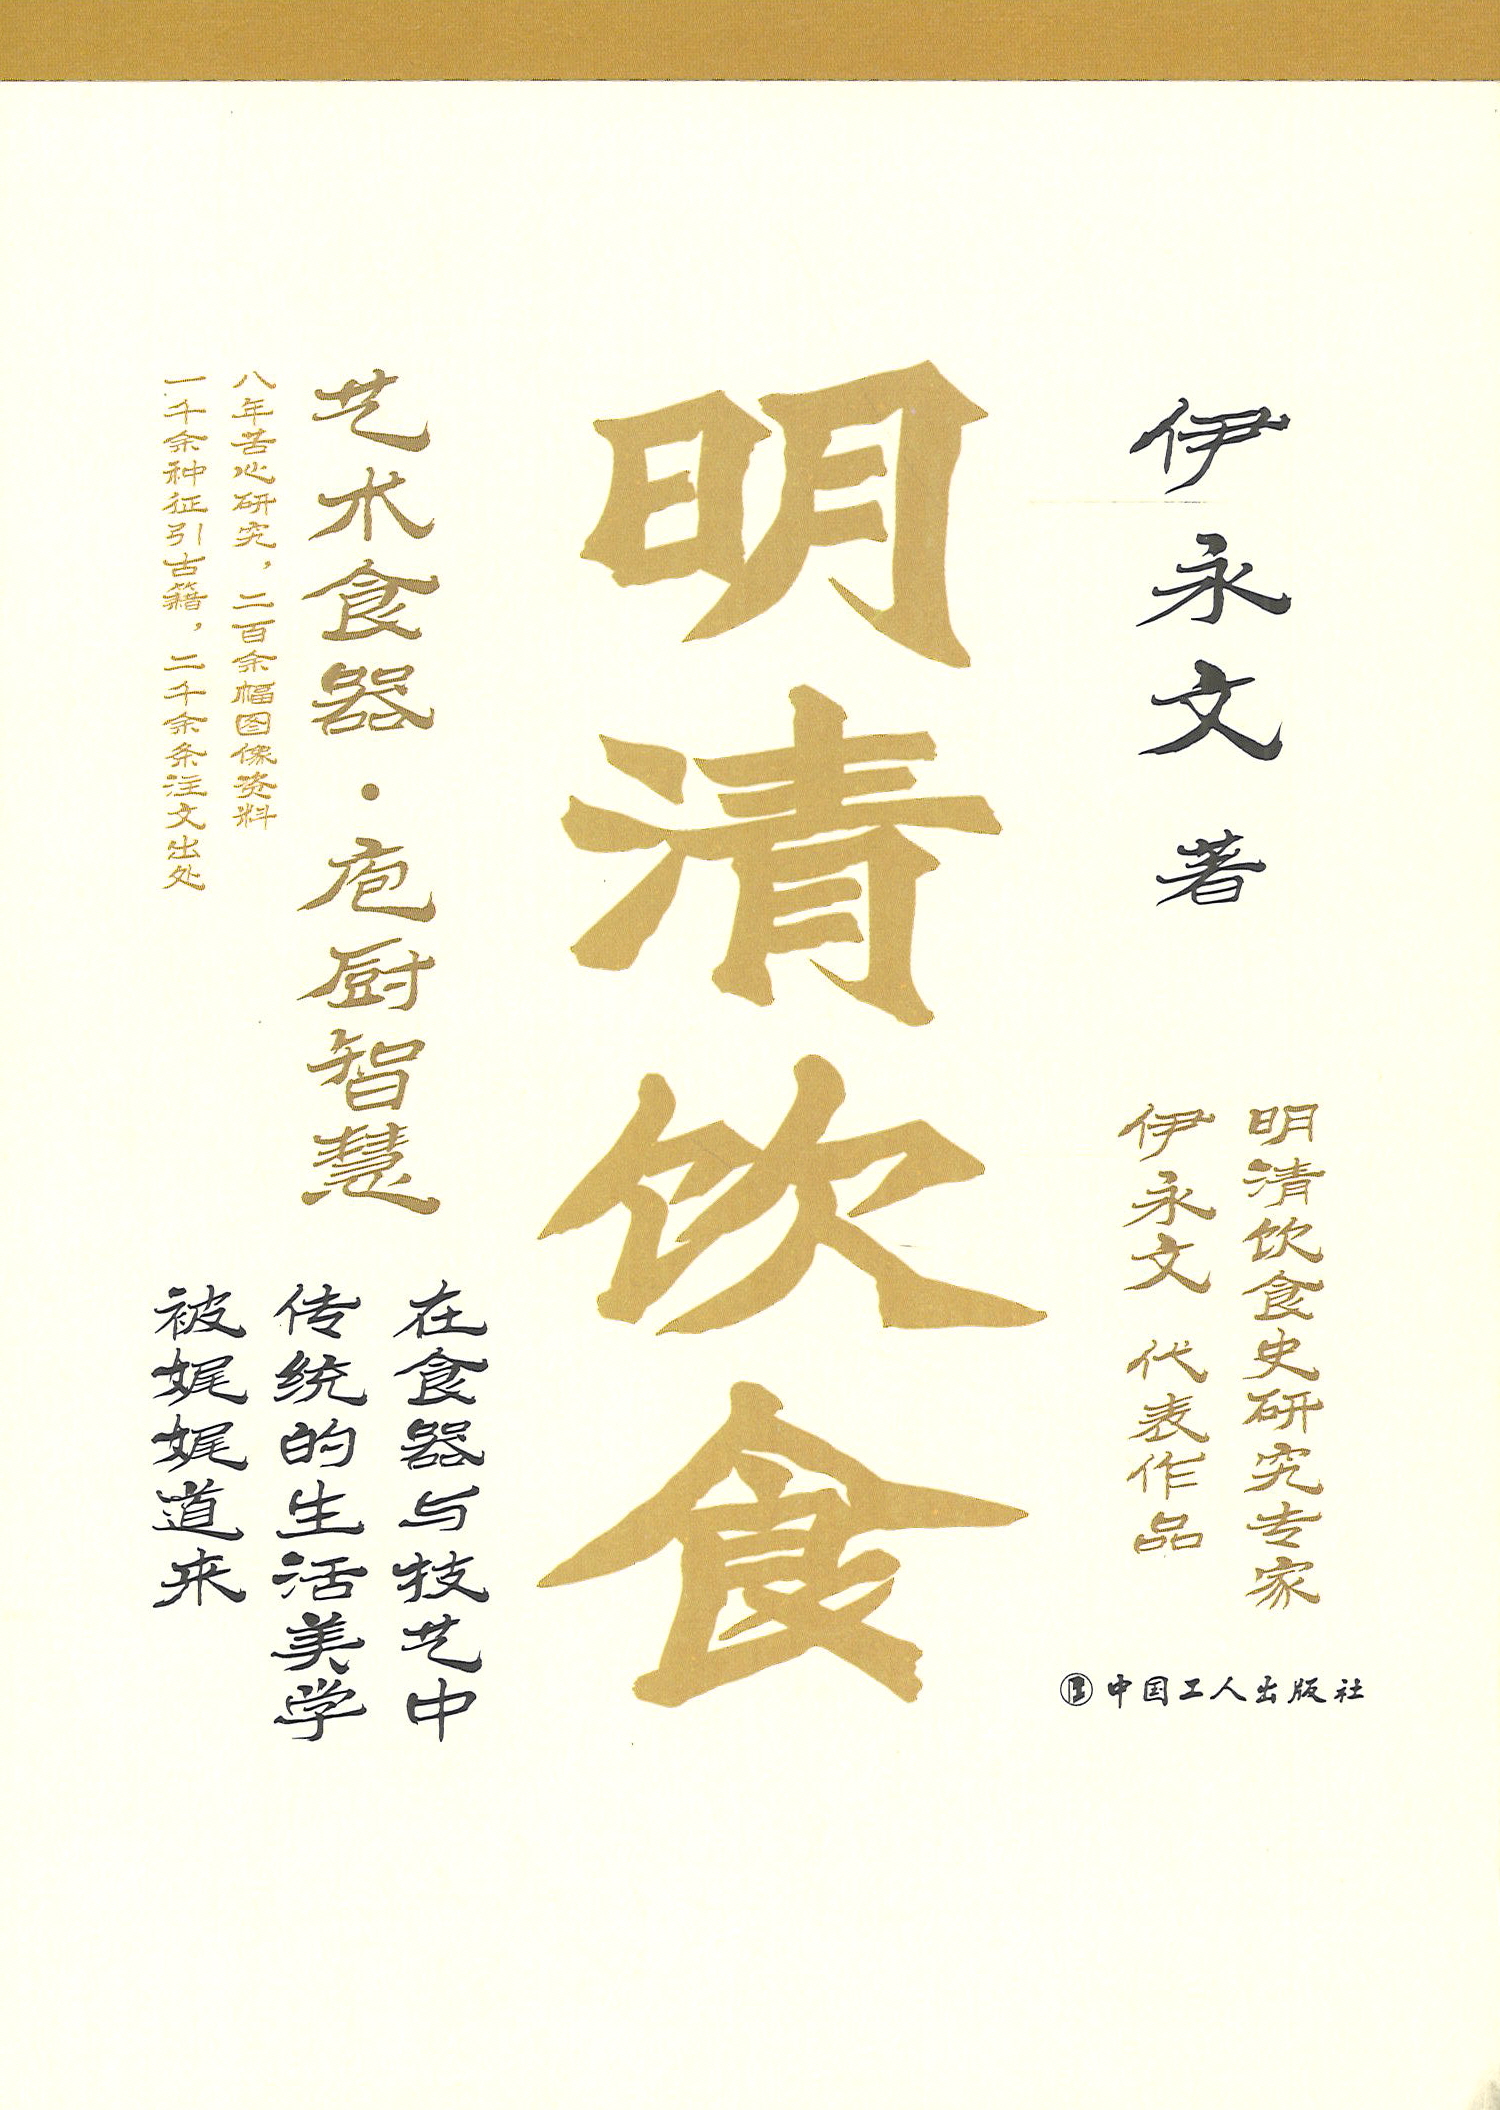 伊永文 著
明清饮食史研究专家
伊永文 代表作品
中国工人出版社
明清饮食
艺术食器·庖厨智慧
在食器与技艺中
传统的生活美学
被娓娓道来
八年苦心研究，二百余幅图像资料
一千余种征引古籍，二千余条注文出处